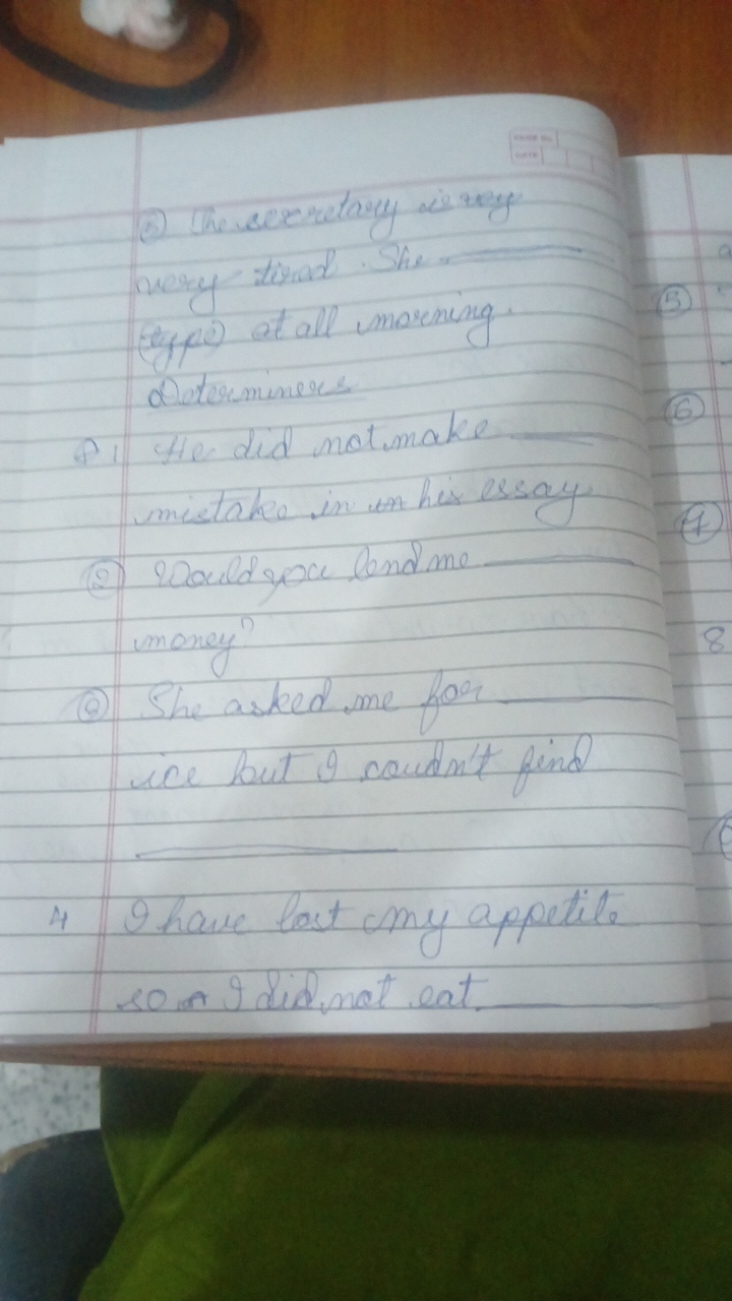 The secretary is very
very tired. She ________
(type) at all morning.
Determiners
1 He did not make ____
mistake in his essay
② Would you lend me ________
money?
She asked me for ________
ice but I coudn't find
________
4 I have lost my appetite
so I did not eat. ________
⑤
⑥
8